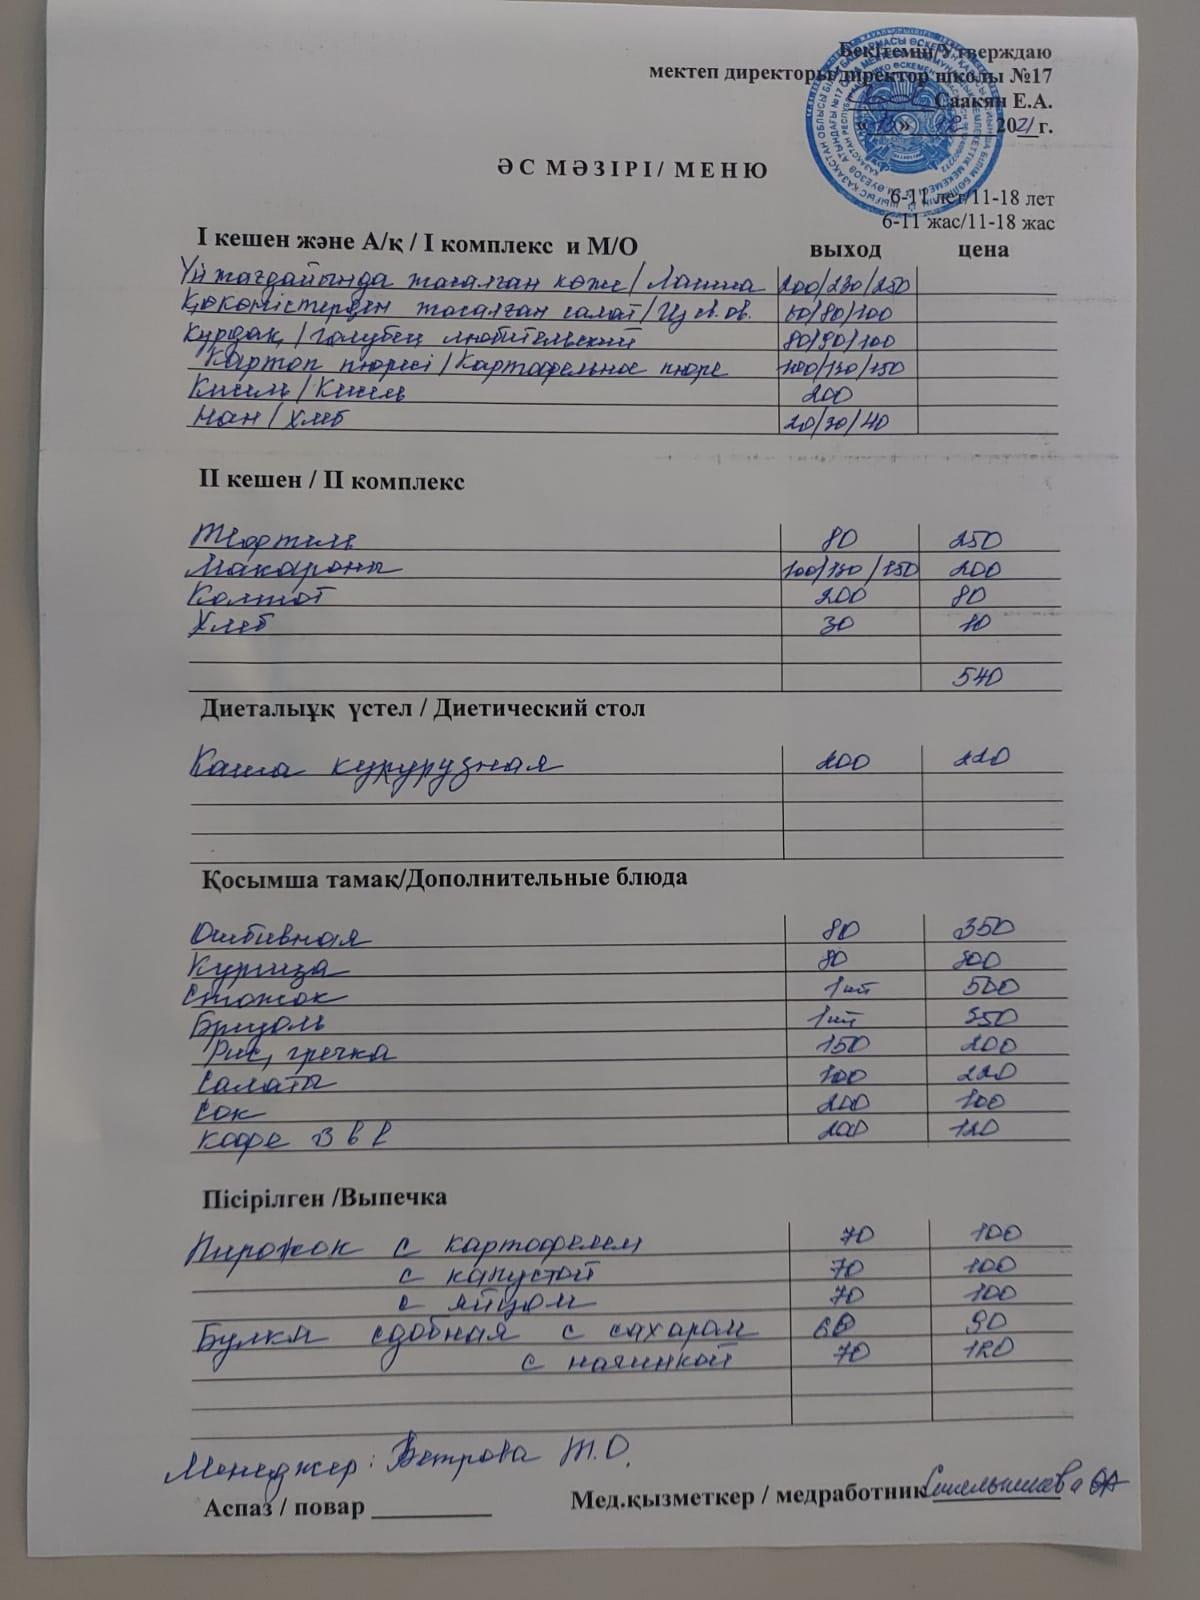 Бекітемін/Утверждаю
мектеп директоры/директор школы №17
Саакян Е.А.
2021 г.
ӘС МӘЗІРІ/ МЕНЮ
6-11 лет/11-18 лет
6-11 жас/11-18 жас
I кешен және А/қ / I комплекс и М/О выход цена
Үй жағдайында жасалған көже/Лапша 200/230/250
Көкөністерден жасалған салат/Из св.ов. 60/80/100
Қуырдақ/Голубец любительский 80/90/100
Картоп пюресі/Картофельное пюре 100/130/150
Кисель/Кисель 200
Нан/Хлеб 20/30/40
II кешен / II комплекс
Тефтель 80 250
Макароны 100/130/150 200
Компот 200 80
Хлеб 30 10
540
Диеталыұқ үстел / Диетический стол
Каша кукурузная 200 220
Қосымша тамақ/Дополнительные блюда
Отбивная 80 350
Курица 80
Стожок 1шт 500
Бризоль 1шт 350
Рис, гречка 150 200
Салаты 100 220
Сок 200 100
Кофе 3 в 1 200 120
Пісірілген /Выпечка
Пирожок с картофелем 70 100
с капустой 70 100
с яйцом 70 100
Булка сдобная с сахаром 60 90
с начинкой 70 120
Менеджер: Ветрова Т.О.
Аспаз / повар Мед.қызметкер / медработник